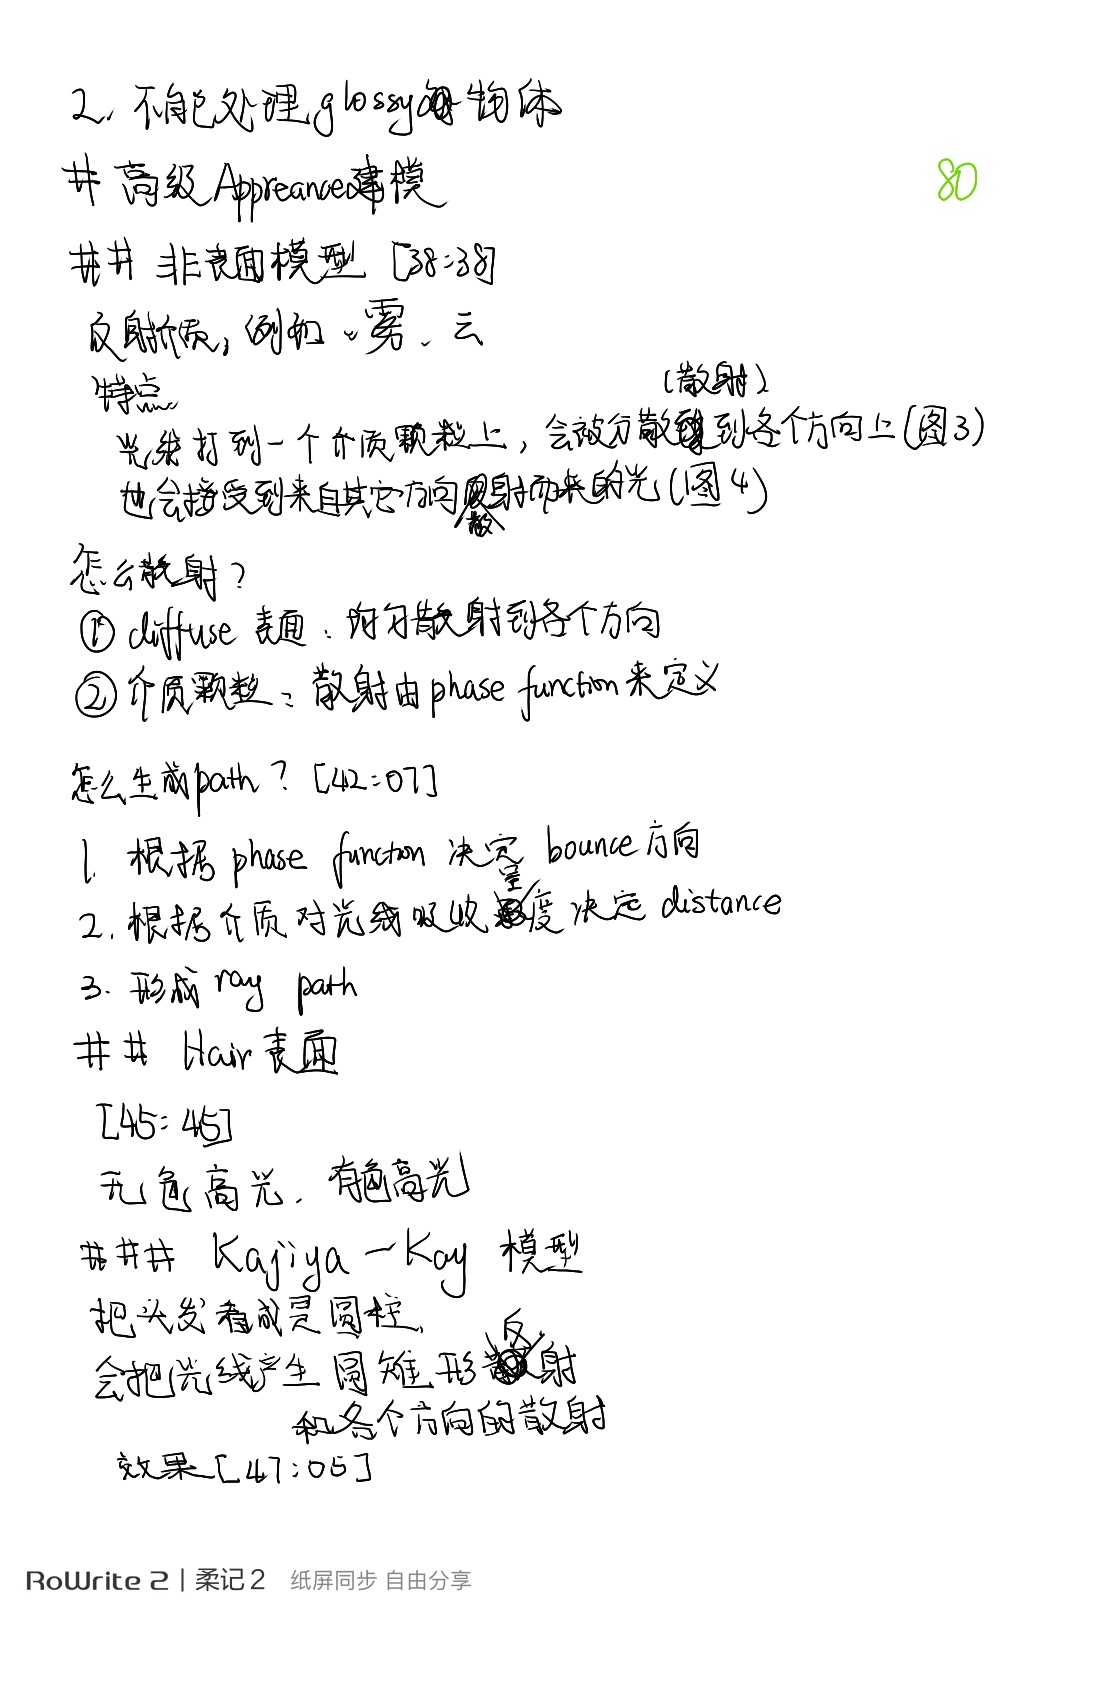 2. 不能处理glossy的物体
# 高级Appreance建模
80
## 非表面模型 [38:38]
反射介质, 例如:雾、云
特点
(散射)
光线打到一个介质颗粒上, 会被分散到各个方向上(图3)
也会接受到来自其它方向散射而来的光(图4)
怎么散射?
① diffuse 表面: 均匀散射到各个方向
② 介质颗粒: 散射由phase function来定义
怎么生成path? [42:07]
1. 根据 phase function 决定 bounce方向
2. 根据介质对光线吸收程度决定 distance
3. 形成 ray path
## Hair表面
[45:45]
无色高光、有色高光
### Kajiya-Kay 模型
把头发看成是圆柱,
会把光线产生圆锥形反射
和各个方向的散射
效果[47:05]
RoWrite 2 | 柔记2 纸屏同步 自由分享